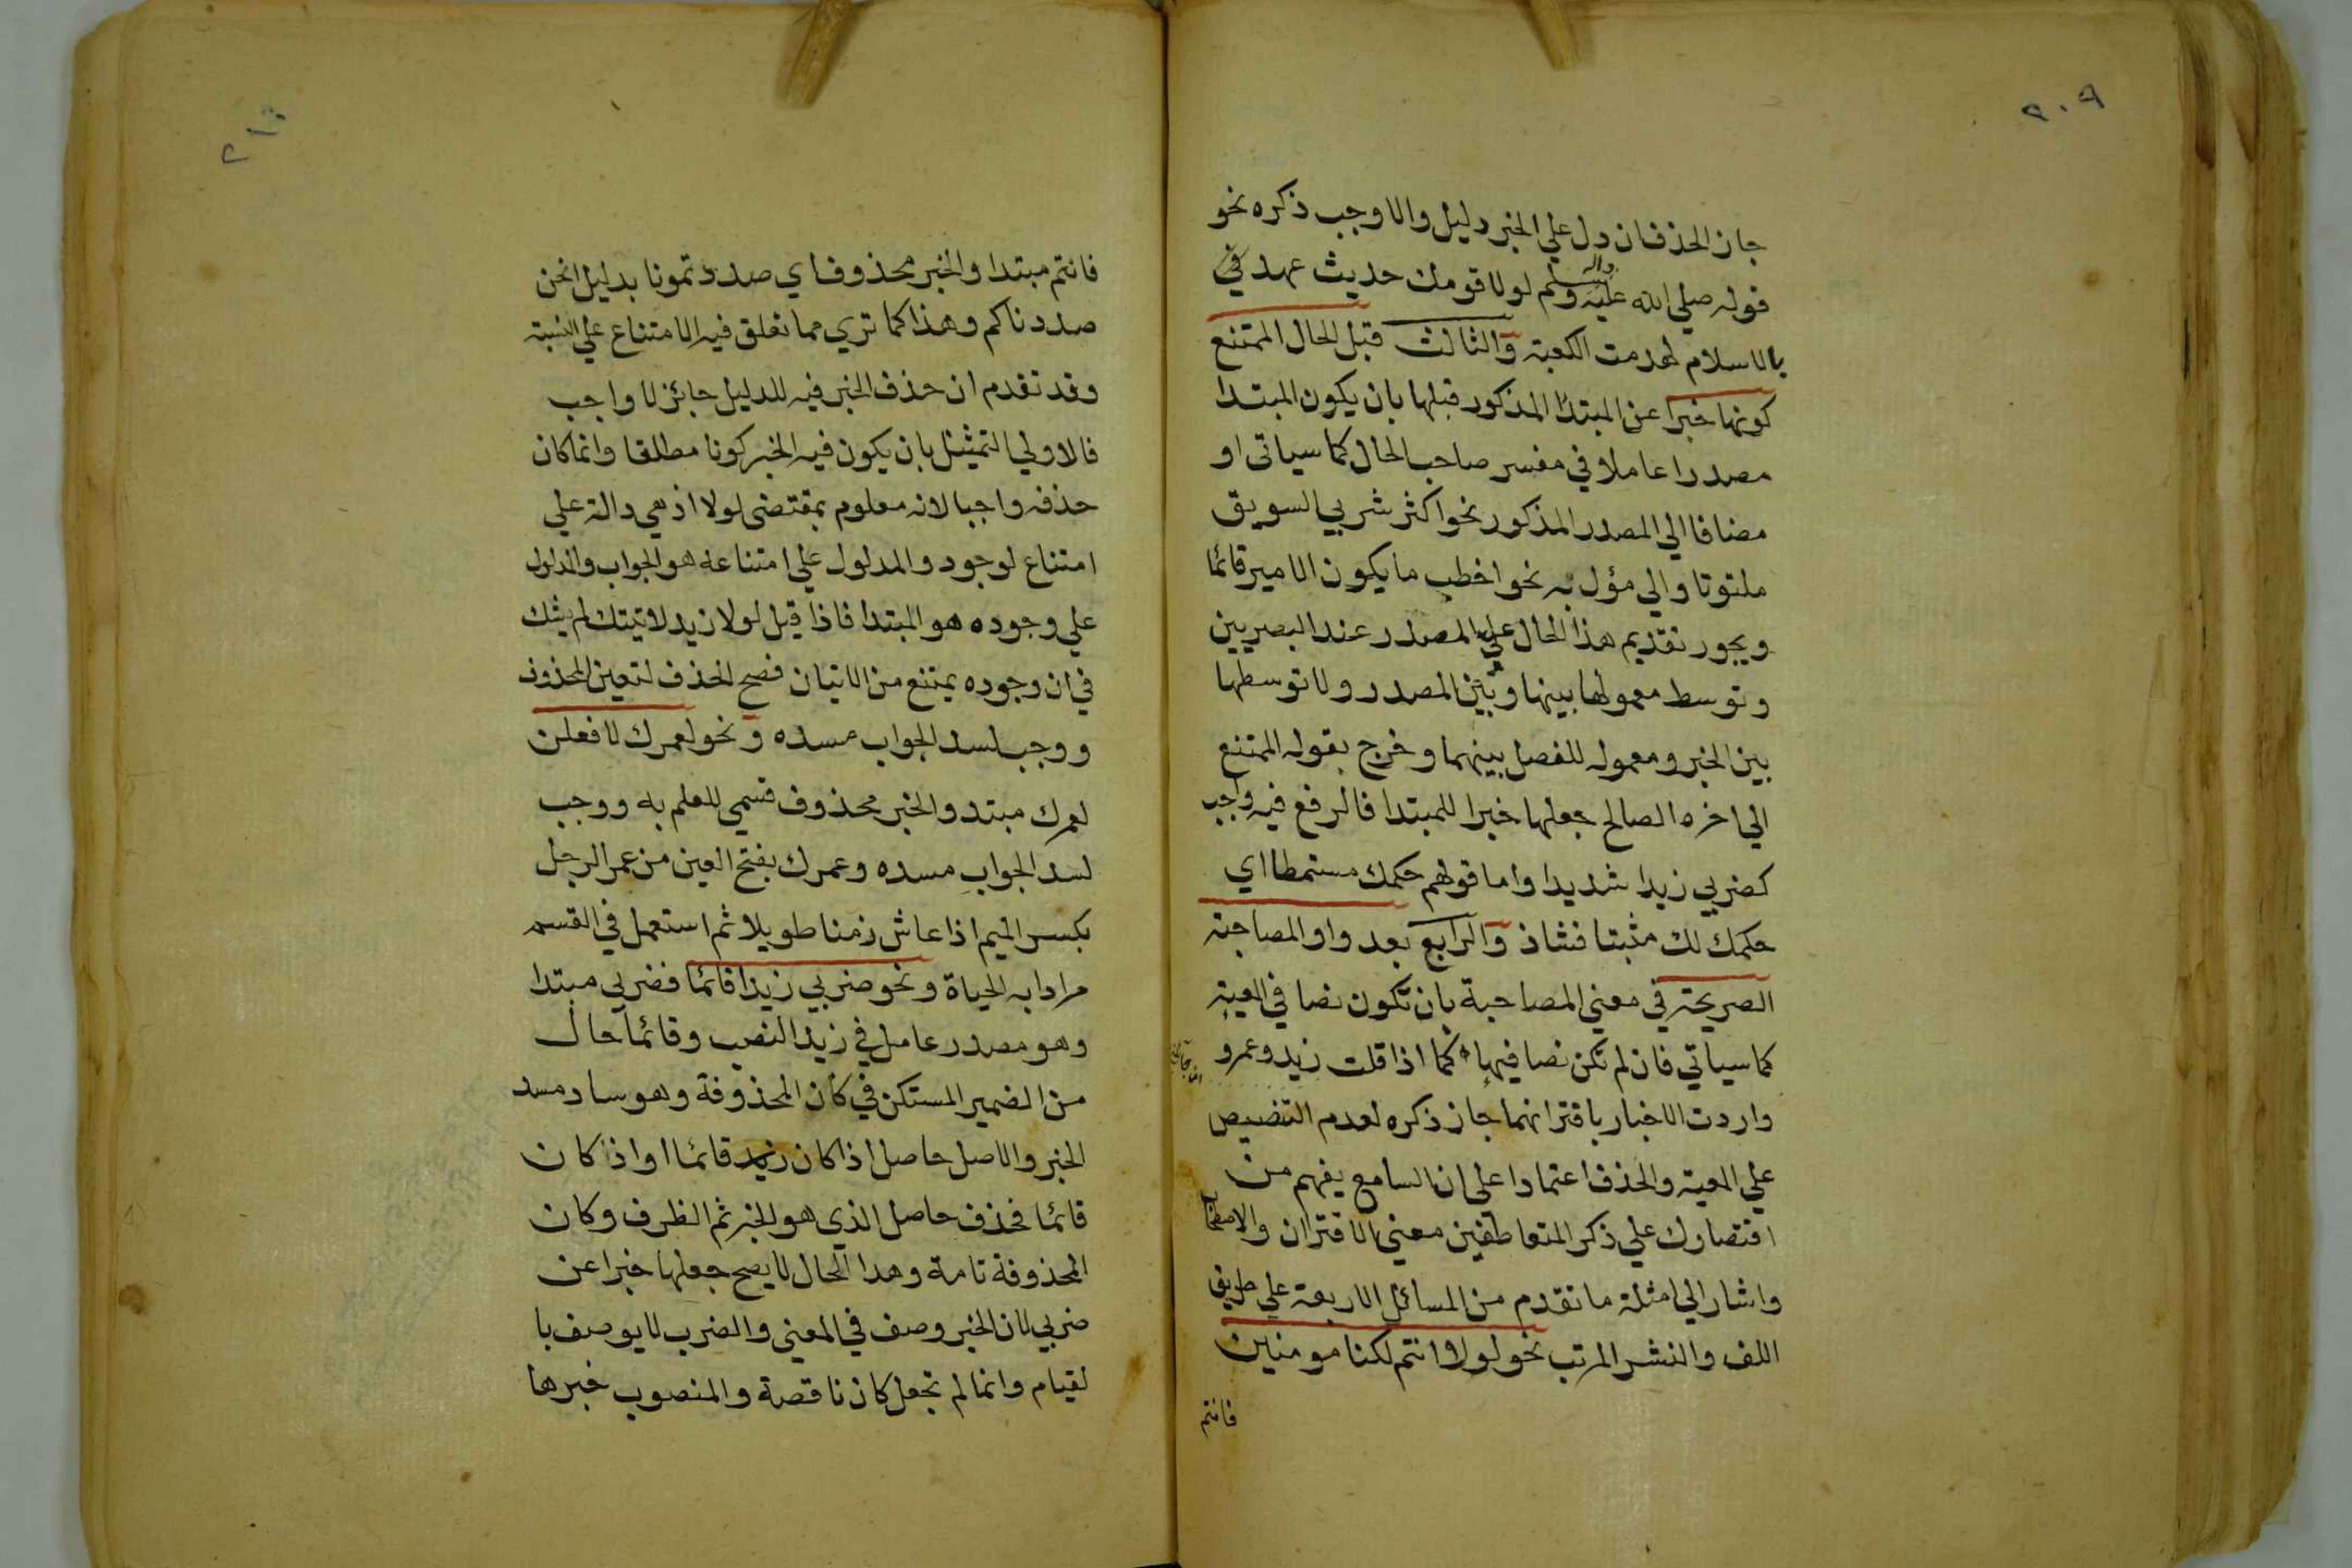 ٢٠٩
جاز الحذف ان دل علي الخبر دليل والا وجب ذكره نحو
قوله صلي الله عليه واله وسلم لولا قومك حديث عهد في
بالاسلام لهدمت الكعبة والثالث قبل الحال الممتنع
كونها خبرا عن المبتدا المذكور قبلها بان يكون المبتدا
مصدرا عاملا في مفسر صاحب الحال كما سياتي او
مضافا الي المصدر المذكور نحو اكثر شربي السويق
ملتوتا والي مؤل به نحو اخطب ما يكون الامير قائما
ويجوز تقديم هذا الحال علي المصدر عند البصريين
وتوسط معمولها بينها وبين المصدر ولا توسطها
بين الخبر ومعموله للفصل بينهما وخرج بقوله الممتنع
الي اخره الصالح جعلها خبرا للمبتدا فالرفع فيه واجب
كضربي زيدا شديدا واما قولهم حكمك مستمطا اي
حكمك لك مثبتا فشاذ والرابع بعد واو المصاحبة
الصريحة في معني المصاحبة بان تكون نصا في المعية
كما سياتي فان لم تكن نصا فيها كما اذا قلت زيد وعمرو
واردت الاخبار باقترانهما جاز ذكره لعدم التنصيص
علي المعية والحذف اعتمادا علي ان السامع يفهم من
اقتصارك علي ذكر المتعاطفين معني الاقتران والاصطحاب
واشار الي امثلة ما تقدم من المسائل الاربعة علي طريق
اللف والنشر المرتب نحو لولا انتم لكنا مومنين
فانتم
٢١٠
فانتم مبتدا والخبر محذوف اي صددتمونا بدليل انحن
صددناكم وهذا كما تري مما تعلق فيه الامتناع علي النسبة
وقد تقدم ان حذف الخبر فيه للدليل جائز لا واجب
فالاولي التمثيل بان يكون فيه الخبر كونا مطلقا وانما كان
حذفه واجبا لانه معلوم بمقتضي لولا اذ هي دالة علي
امتناع لوجود والمدلول علي امتناعه هو الجواب والمدلول
علي وجوده هو المبتدا فاذا قيل لولا زيد لاتيتك لم يشك
في ان وجوده يمتنع من الاتيان فصح الحذف لتعين المحذوف
ووجب لسد الجواب مسده ونحو لعمرك لافعلن
لعمرك مبتدو الخبر محذوف قسمي للعلم به ووجب
لسد الجواب مسده وعمرك بفتح العين من عمر الرجل
بكسر الميم اذا عاش زمنا طويلا ثم استعمل في القسم
مرادا به الحياة ونحو ضربي زيدا قائما فضربي مبتدا
وهو مصدر عامل في زيد النصب وقائما حال
من الضمير المستكن في كان المحذوفة وهو ساد مسد
الخبر والاصل حاصل اذا كان زيد قائما او اذ كان
قائما فحذف حاصل الذي هو الخبر ثم الظرف وكان
المحذوفة تامة وهذا الحال لا يصح جعلها خبرا عن
ضربي لان الخبر وصف في المعني والضرب لا يوصف با
لقيام وانما لم تجعل كان ناقصة والمنصوب خبرها